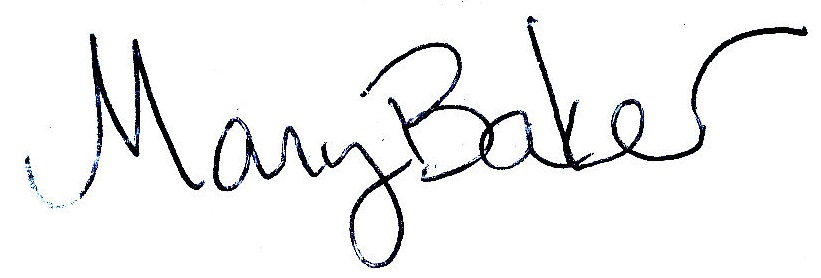 Mary Baker